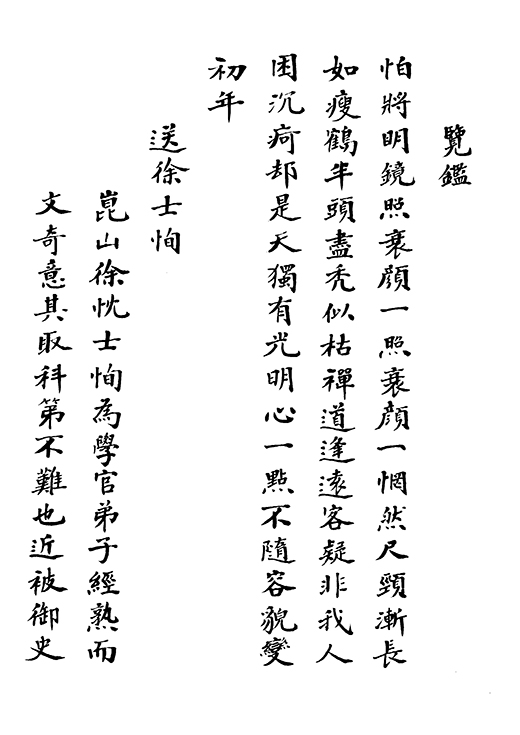 覽鑑
怕將明鏡照衰顔一照衰顔一惘然尺頸漸長
如瘦鶴半頭盡秃似枯禪道逢遠客疑非我人
困沉疴却是天獨有光明心一點不隨容貌變
初年
送徐士恂
崑山徐忱士恂為學官弟子經熟而
文奇意其取科第不難也近被御史